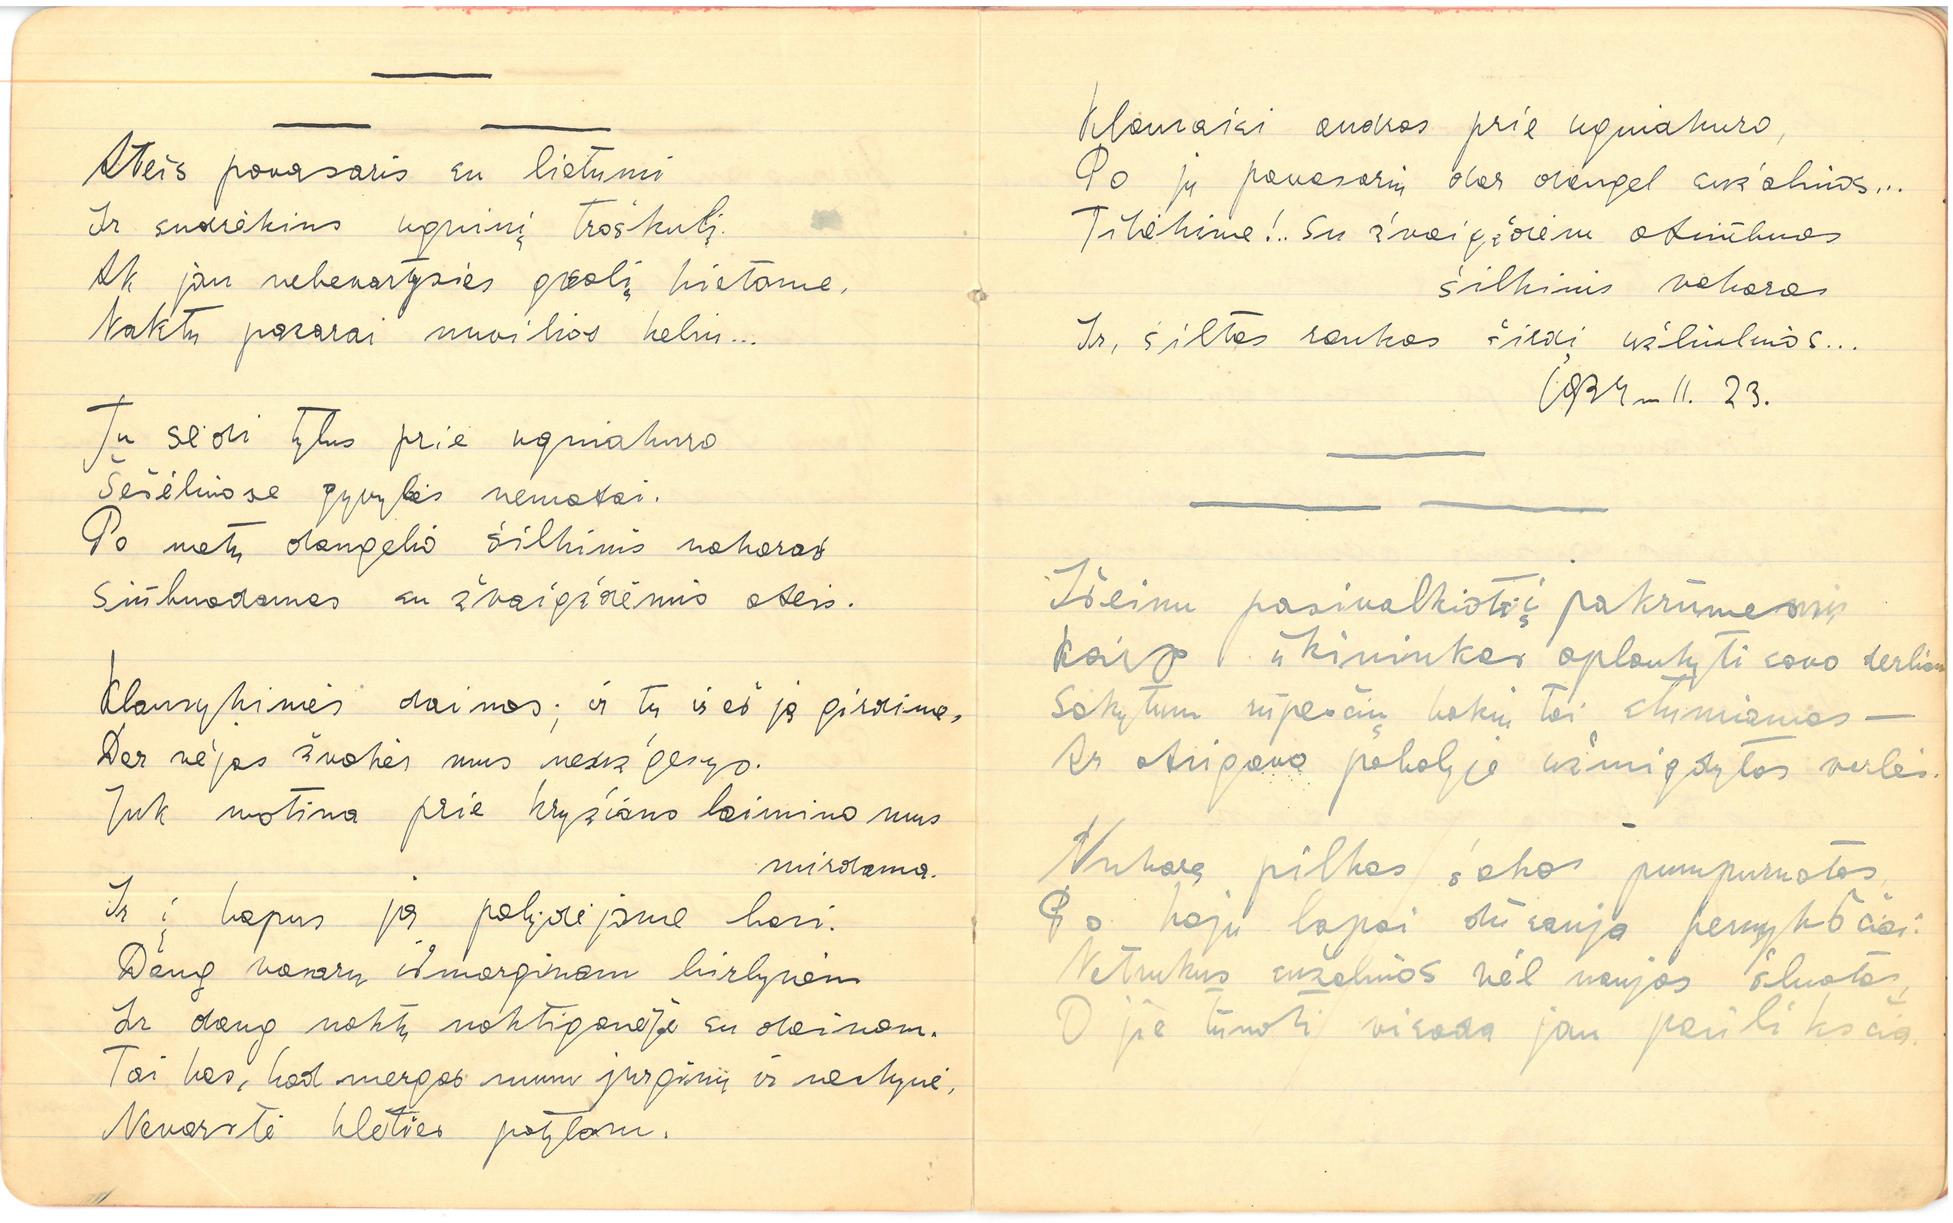 Ateis pavasaris su lietumi
Ir sudrėkins ugninį troškulį.
Ak jau nebevartysies guolį kietame,
Naktų pazarai nuvilios keliu...
Tu sėdi tylus prie ugniakuro
Šešėliuose gyvybės nematai.
Po metų dangelio šilkinis vakaras
Siūbuodamas su žvaigždėmis ateis.
Klausykimės dainos; ir tu ir aš ją girdime,
Dar vėjas žvakės mus neužgesyo.
Juk motina prie kryžiaus laimino mus
mirdama.
Ir į kapus ją palydėjome basi.
Daug vasarų išmarginam birbynėm
Ir daug naktų naktigonėje su dainom.
Tai kas, kad mergos mum jurginų ir neskynė,
Nevarstė klėties patylom.
Klausaisi audros prie ugniakuro,
Po jų pavasarių dar dangel sužaliuos...
Tikėkime!.. Su žvaigždėm atsiūbuos
šilkinis vakaras
Ir, šiltas rankas širdį užliuliuos...
1934 - II. 23.
Išeinu pasivalkiotų į pakrūmes
Kaip ūkininkas aplankyti savo derliaus
Sakytum rūpesčių kokių tai stumiamas —
Ar atrigava pabalyje užmigdytas varlės.
Nukarę pilkas šakos pumpuruotas
Po kojų lapai dūsauja pernykščiai:
Netrukus sužaliuos vėl naujos šluotos,
O jie tūnoti visada jau pasiliks čia.